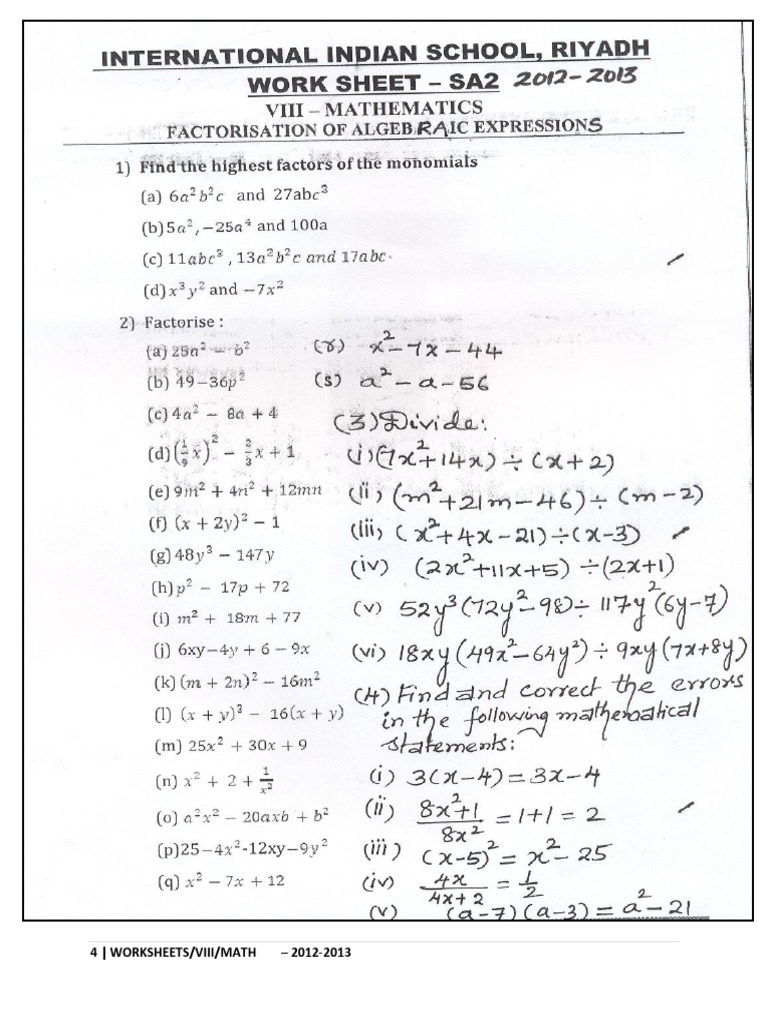 INTERNATIONAL INDIAN SCHOOL, RIYADH
WORK SHEET – SA2 2012-2013
VIII – MATHEMATICS
FACTORISATION OF ALGEBRAIC EXPRESSIONS
1) Find the highest factors of the monomials
(a) 6a²b²c and 27abc³
(b) 5a², −25a⁴ and 100a
(c) 11abc³ , 13a²b²c and 17abc
(d) x³y² and −7x²
2) Factorise :
(a) 25a² − b²
(b) 49−36p²
(c) 4a² − 8a + 4
(d) (1/9 x)² − 2/3 x + 1
(e) 9m² + 4n² + 12mn
(f) (x + 2y)² − 1
(g) 48y³ − 147y
(h) p² − 17p + 72
(i) m² + 18m + 77
(j) 6xy−4y + 6 − 9x
(k) (m + 2n)² − 16m²
(l) (x + y)³ − 16(x + y)
(m) 25x² + 30x + 9
(n) x² + 2 + 1/x²
(o) a²x² − 20axb + b²
(p) 25−4x²-12xy−9y²
(q) x² − 7x + 12
(r) x² − 7x − 44
(s) a² − a − 56
(3) Divide:
(i) (7x²+14x) ÷ (x+2)
(ii) (m²+21m−46) ÷ (m−2)
(iii) (x²+4x−21) ÷ (x−3)
(iv) (2x²+11x+5) ÷ (2x+1)
(v) 52y³(72y²−98) ÷ 117y²(6y−7)
(vi) 18xy(49x²−64y²) ÷ 9xy(7x+8y)
(4) Find and correct the errors
in the following mathematical
statements:
(i) 3(x−4) = 3x−4
(ii) 8x²+1/8x² = 1+1 = 2
(iii) (x−5)² = x²− 25
(iv) 4x/4x+2 = 1/2
(v) (a−7)(a−3) = a²−21
4 | WORKSHEETS/VIII/MATH – 2012-2013